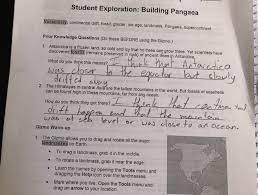 Student Exploration: Building Pangaea
Vocabulary: continental drift, fossil, glacier, ice age, landmass, Pangaea, supercontinent
Prior Knowledge Questions (Do these BEFORE using the Gizmo.)
1. Antarctica is a frozen land, so cold and icy that no trees can grow there. Yet scientists have
discovered fossils (remains preserved in rock) of ancient trees in Antarctica.
What do you think this means? I think that Antarctica
was closer to the equator but slowly
drifted away
2. The Himalayas in central Asia are the tallest mountains in the world. But fossils of seashells
can be found high in these mountains, far from any ocean.
How do you think they got there? I think that
drift happen and that the mountain
was at sea level or was close to an ocean.
Gizmo Warm-up
The Gizmo allows you to drag and rotate all the major
landmasses on Earth.
• To drag a landmass, grab it in the middle.
• To rotate a landmass, grab it near the edge.
• Learn the names by opening the Tools menu and
dragging the Help icon over the landmasses.
• Mark where you live. Open the Tools menu and
drag an arrow to your location.